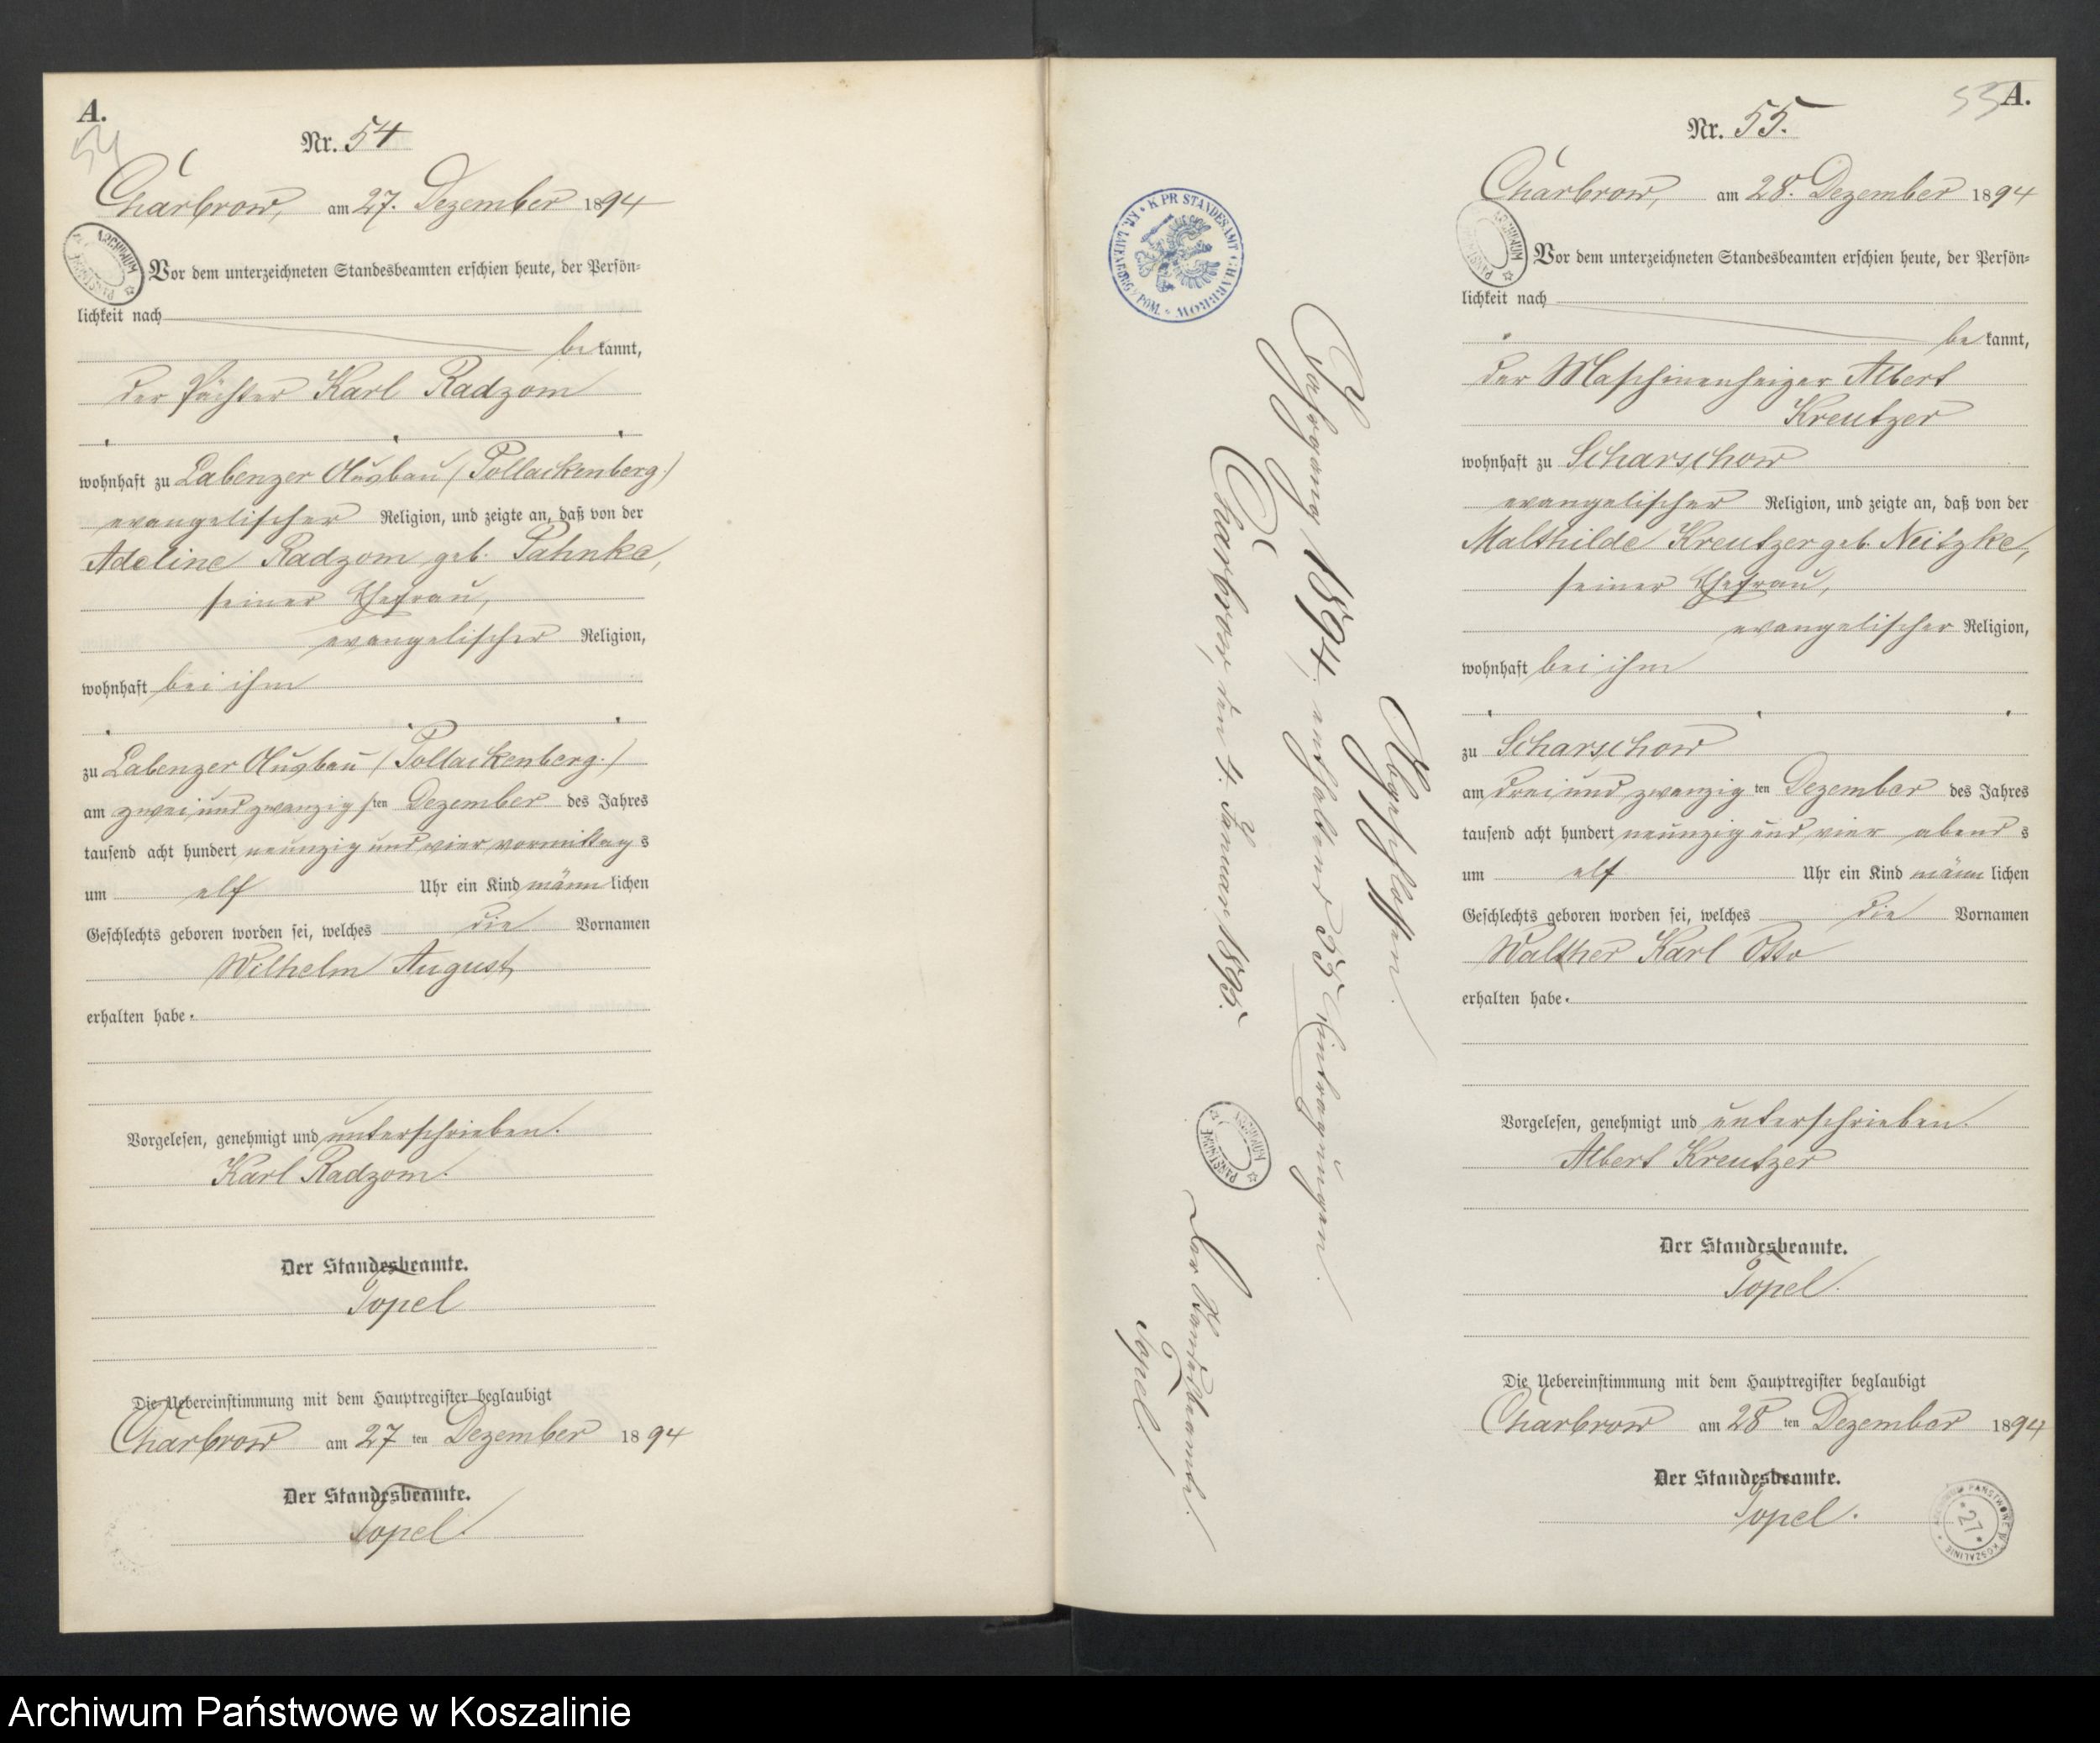 A.
54
Nr. 54
Charbrow, am 27. Dezember 1894
Vor dem unterzeichneten Standesbeamten erschien heute, der Persön=
lichkeit nach
bekannt,
der Pächter Karl Radzom
wohnhaft zu Labenzer Ausbau (Pollackenberg.)
evangelischer Religion, und zeigte an, daß von der
Adeline Radzom geb. Pahnke,
seiner Ehefrau,
evangelischer Religion,
wohnhaft bei ihm
zu Labenzer Ausbau (Pollackenberg.)
am zwei und zwanzigsten Dezember des Jahres
tausend acht hundert neunzig und vier vormittags
um elf Uhr ein Kind männlichen
Geschlechts geboren worden sei, welches die Vornamen
Wilhelm August
erhalten habe.
Vorgelesen, genehmigt und unterschrieben.
Karl Radzom.
Der Standesbeamte.
Topel
Die Uebereinstimmung mit dem Hauptregister beglaubigt
Charbrow am 27ten Dezember 1894
Der Standesbeamte.
Topel.
ARCHIWUM PAŃSTWOWE
K. PR. STANDESAMT CHARBROW
KR. LAUENBURG / POM.
Abgeschlossen.
Jahrgang 1894, enthaltend 55 Eintragungen.
Charbrow, den 4. Januar 1895.
Der Standesbeamte.
Topel.
ARCHIWUM PAŃSTWOWE
55
A.
Nr. 55.
Charbrow, am 28. Dezember 1894
Vor dem unterzeichneten Standesbeamten erschien heute, der Persön=
lichkeit nach
bekannt,
der Maschinenheizer Albert
Kreutzer
wohnhaft zu Scharschow
evangelischer Religion, und zeigte an, daß von der
Malthilde Kreutzer geb. Neitzke,
seiner Ehefrau,
evangelischer Religion,
wohnhaft bei ihm
zu Scharschow
am drei und zwanzigten Dezember des Jahres
tausend acht hundert neunzig und vier abends
um elf Uhr ein Kind männlichen
Geschlechts geboren worden sei, welches die Vornamen
Walther Karl Otto
erhalten habe.
Vorgelesen, genehmigt und unterschrieben.
Albert Kreutzer
Der Standesbeamte.
Topel.
Die Uebereinstimmung mit dem Hauptregister beglaubigt
Charbrow am 28ten Dezember 1894
Der Standesbeamte.
Topel.
ARCHIWUM PAŃSTWOWE
ARCHIWUM PAŃSTWOWE W KOSZALINIE
27
Archiwum Państwowe w Koszalinie